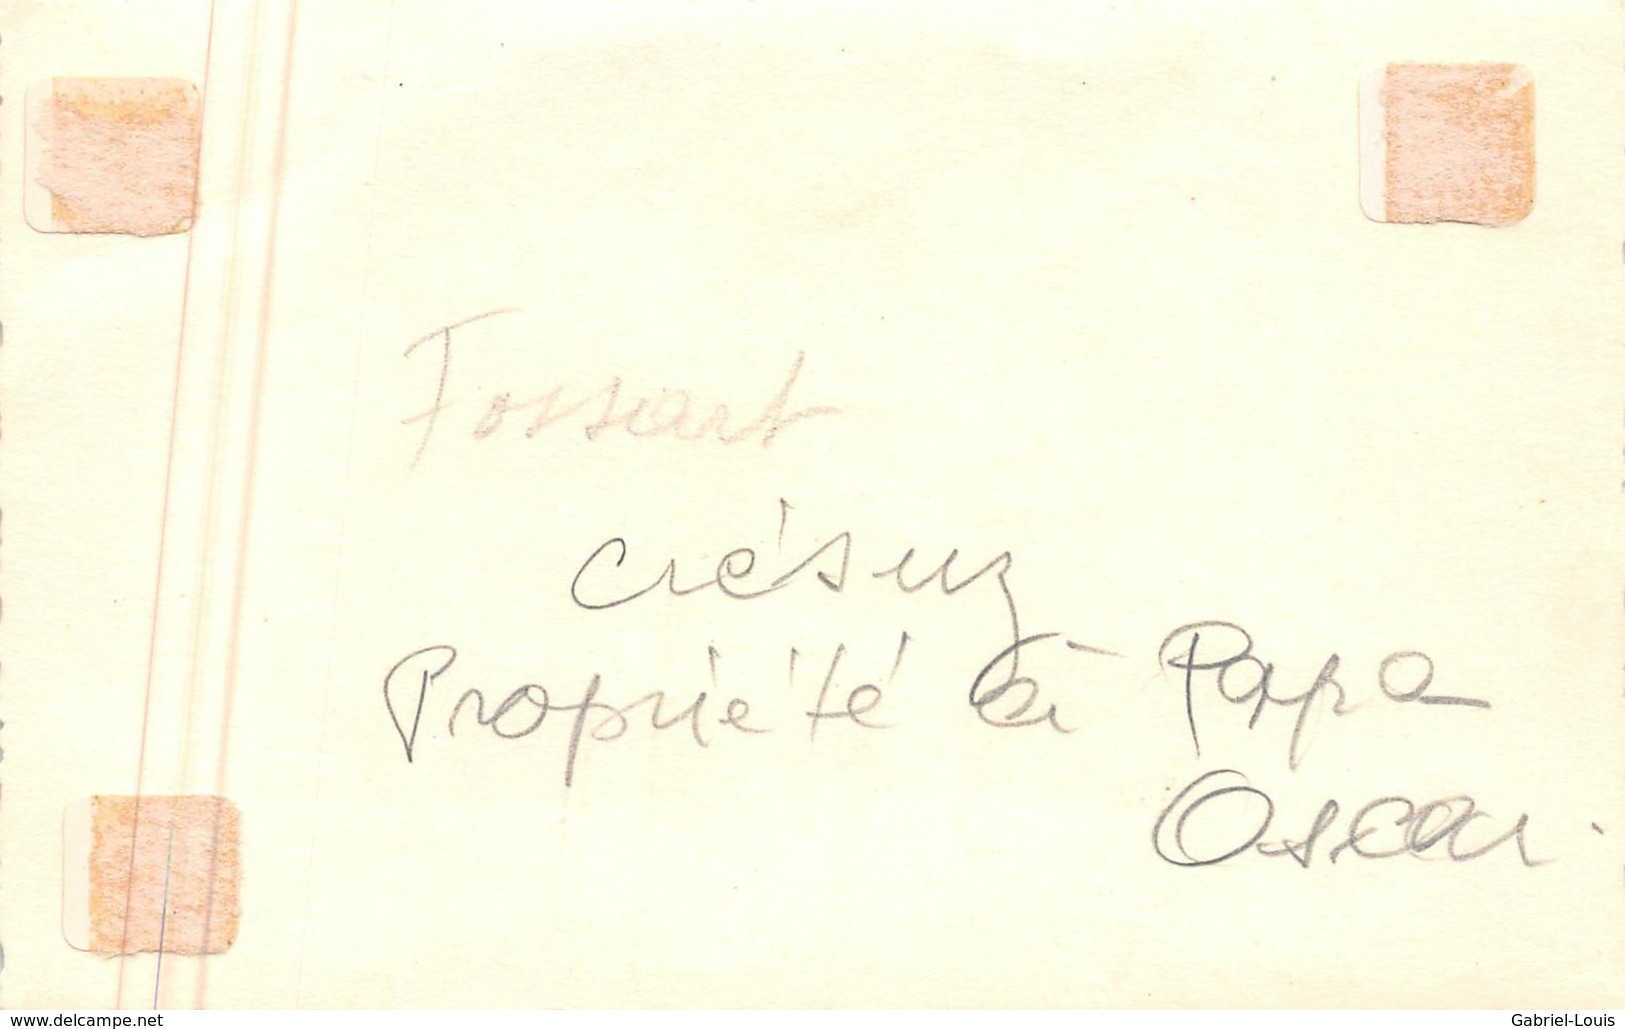 Fossart
Crésuz
Propriété à Papa
Oscar.
www.delcampe.net
Gabriel-Louis